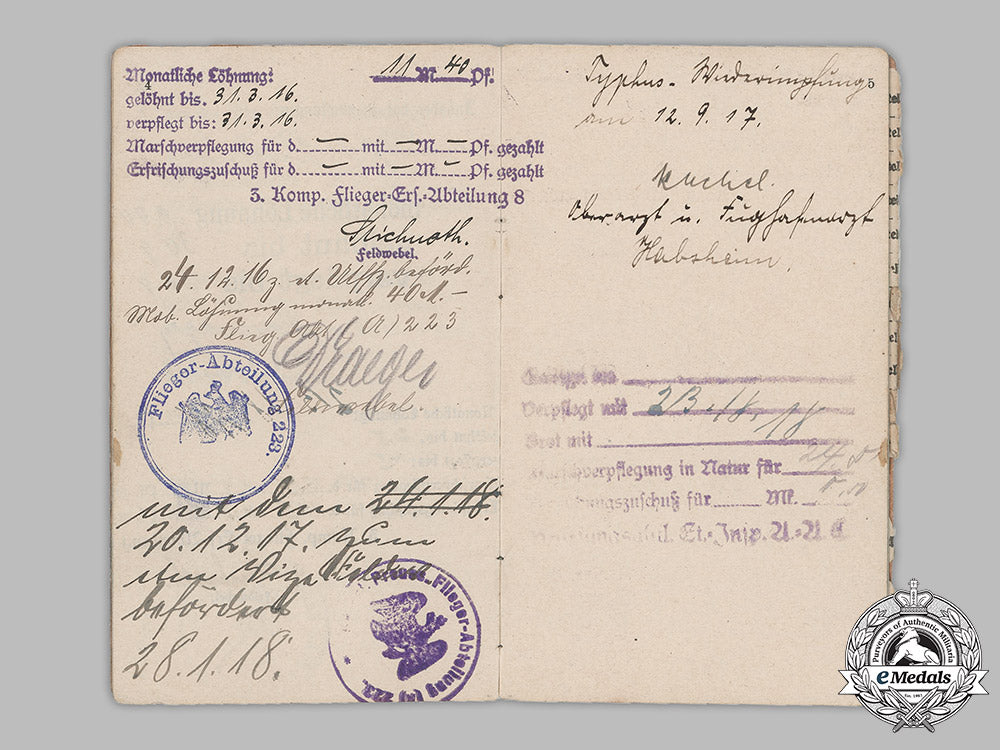 4
Monatliche Löhnung: 11 M. 40 Pf.
gelöhnt bis. 31.3.16.
verpflegt bis: 31.3.16.
Marschverpflegung für d. — mit — M. — Pf. gezahlt
Erfrischungszuschuß für d. — mit — M. — Pf. gezahlt
3. Komp. Flieger-Ers.-Abteilung 8
Feldwebel.
24.12.16 z. Utffz. beförd.
Mob. Löhnung monatl. 40 M. —
Flieg. Abt. (A) 223
Flieger-Abteilung 223.
mit dem 24.1.18.
20.12.17. zum
Vize Feldw.
befördert
28.1.18.
Preuss. Flieger-Abteilung (A) 223.
5
Typhus-Wiederimpfung
am 12.9.17.
Oberarzt u. Flughafenarzt
Habsheim.
Verpflegt mit
Brot mit
Marschverpflegung in Natur für
zuschuß für Mk.
Et.-Insp.
Purveyors of Authentic Militaria
eMedals